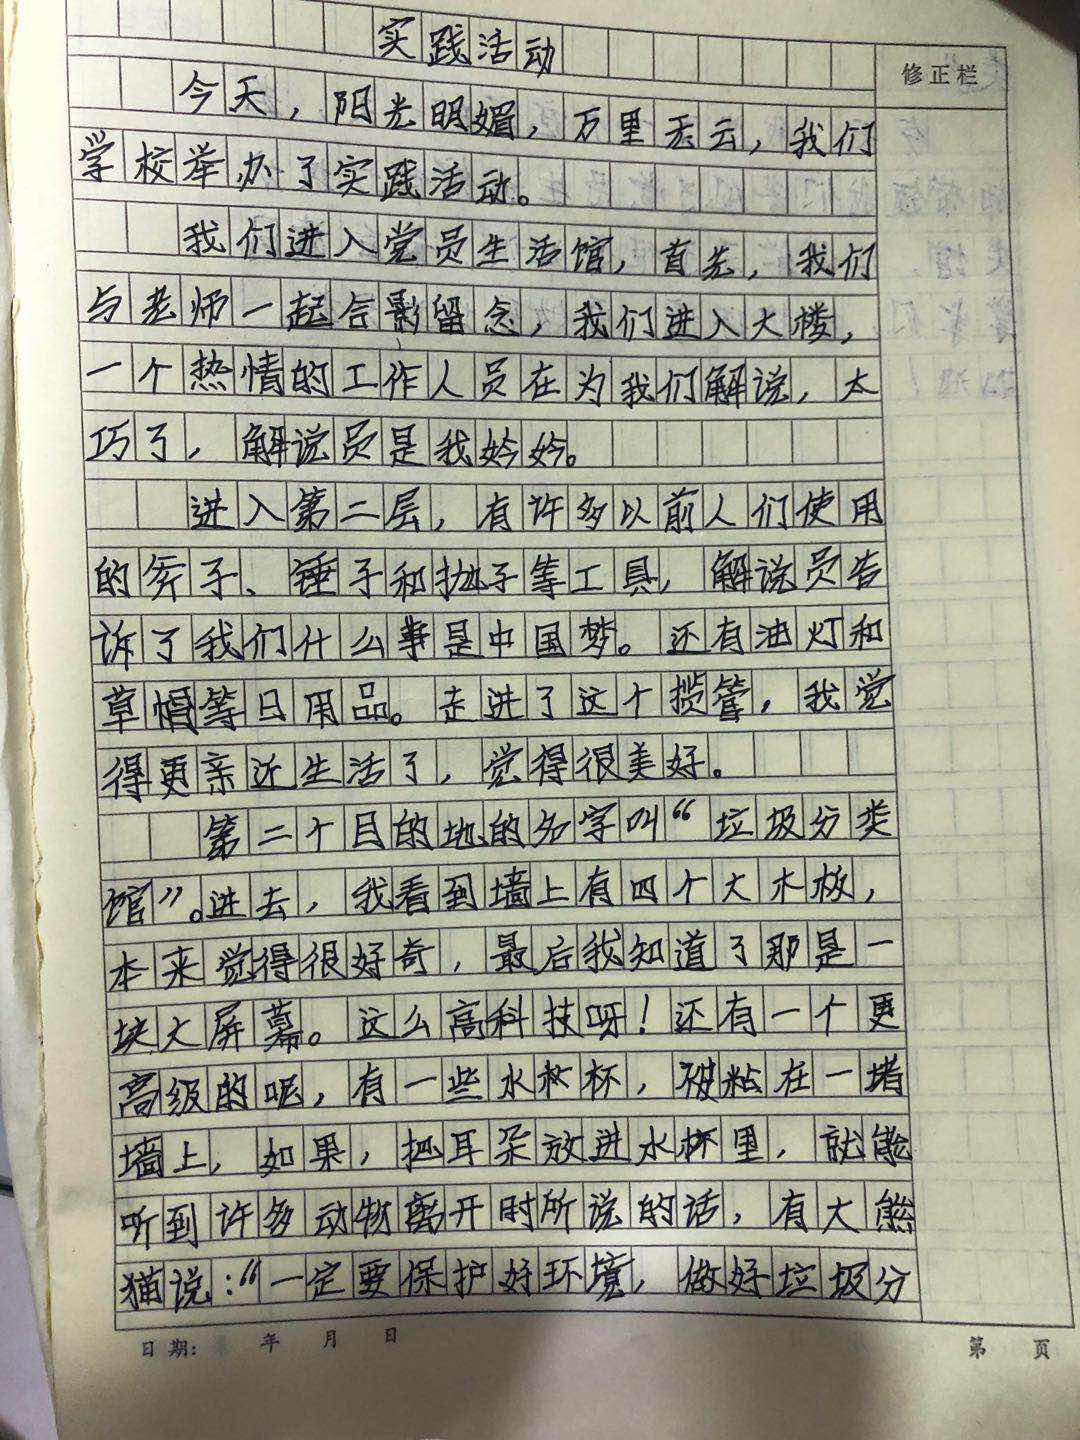 实践活动
修正栏
今天，阳光明媚，万里无云，我们
学校举办了实践活动。
我们进入党员生活馆，首先，我们
与老师一起合影留念，我们进入大楼，
一个热情的工作人员在为我们解说，太
巧了，解说员是我妗妗。
进入第二层，有许多以前人们使用
的斧子、锤子和抛子等工具，解说员告
诉了我们什么事是中国梦。还有油灯和
草帽等日用品。走进了这个揽管，我觉
得更亲近生活了，觉得很美好。
第二个目的地的名字叫“垃圾分类
馆”。进去，我看到墙上有四个大木板，
本来觉得很好奇，最后我知道了那是一
块大屏幕。这么高科技呀！还有一个更
高级的呢，有一些水杯杯，被粘在一堵
墙上，如果，把耳朵放进水杯里，就能
听到许多动物离开时所说的话，有大熊
猫说：“一定要保护好环境，做好垃圾分
日期： 年 月 日
第 页